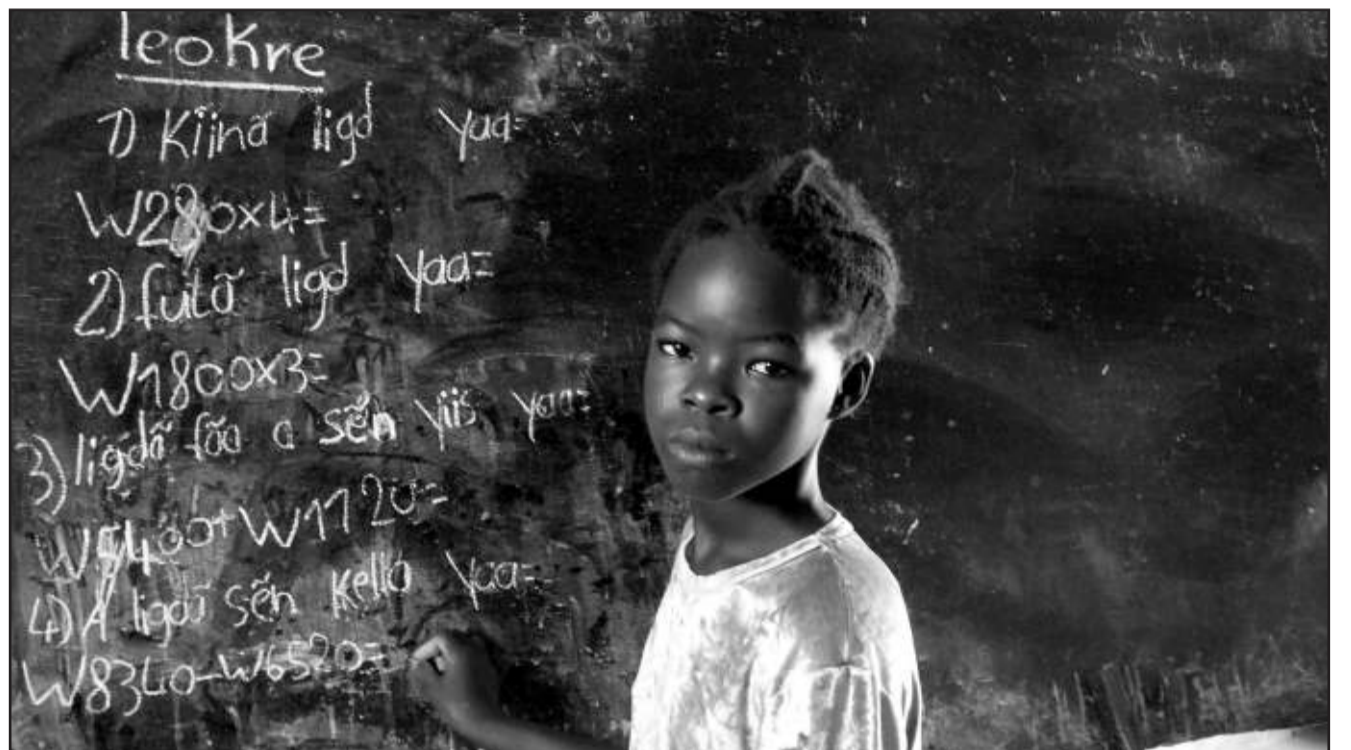 leokre
1) Kĩinã ligd yaa=
W280x4=
2) futã ligd yaa=
W1800x3=
3) ligdã fãa a sẽn yiis yaa=
W5400+W1120=
4) A ligdĩ sẽn kellã yaa=
W8340-W6520=